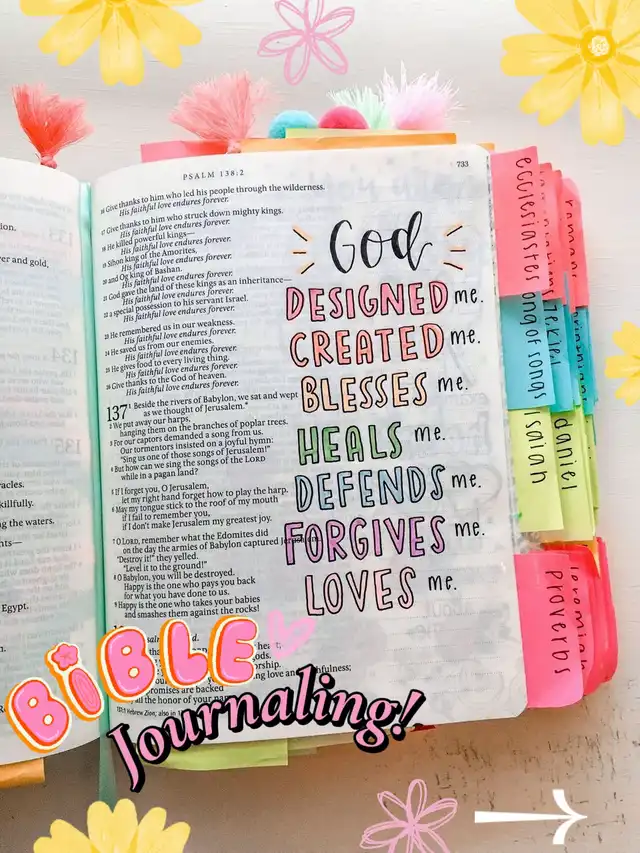 PSALM 138:2
733
ion.
ver and gold,
racles.
killfully.
ng the waters.
nts—
Egypt.
16 Give thanks to him who led his people through the wilderness.
His faithful love endures forever.
17 Give thanks to him who struck down mighty kings.
His faithful love endures forever.
18 He killed powerful kings—
His faithful love endures forever.
19 Sihon king of the Amorites,
His faithful love endures forever.
20 and Og king of Bashan.
His faithful love endures forever.
21 God gave the land of these kings as an inheritance—
His faithful love endures forever.
22 a special possession to his servant Israel.
His faithful love endures forever.
23 He remembered us in our weakness.
His faithful love endures forever.
24 He saved us from our enemies.
His faithful love endures forever.
25 He gives food to every living thing.
His faithful love endures forever.
26 Give thanks to the God of heaven.
His faithful love endures forever.
137 1 Beside the rivers of Babylon, we sat and wept
as we thought of Jerusalem.
2 We put away our harps,
hanging them on the branches of poplar trees.
3 For our captors demanded a song from us.
Our tormentors insisted on a joyful hymn:
"Sing us one of those songs of Jerusalem!"
4 But how can we sing the songs of the LORD
while in a pagan land?
5 If I forget you, O Jerusalem,
let my right hand forget how to play the harp.
6 May my tongue stick to the roof of my mouth
if I fail to remember you,
if I don't make Jerusalem my greatest joy.
7 O LORD, remember what the Edomites did
on the day the armies of Babylon captured Jerusalem.
"Destroy it!" they yelled.
"Level it to the ground!"
8 O Babylon, you will be destroyed.
Happy is the one who pays you back
for what you have done to us.
9 Happy is the one who takes your babies
and smashes them against the rocks!
ods.
orship.
ng love and faithfulness;
promises are backed
all the honor of your
Hebrew Zion; also in
God
DESIGNED me.
CREATED me.
BLESSES me.
HEALS me.
DEFENDS me.
FORGIVES me.
LOVES me.
ecclesiastes
song of songs
isaiah
daniel
proverbs
jeremiah
romans
BiBLE
Journaling!